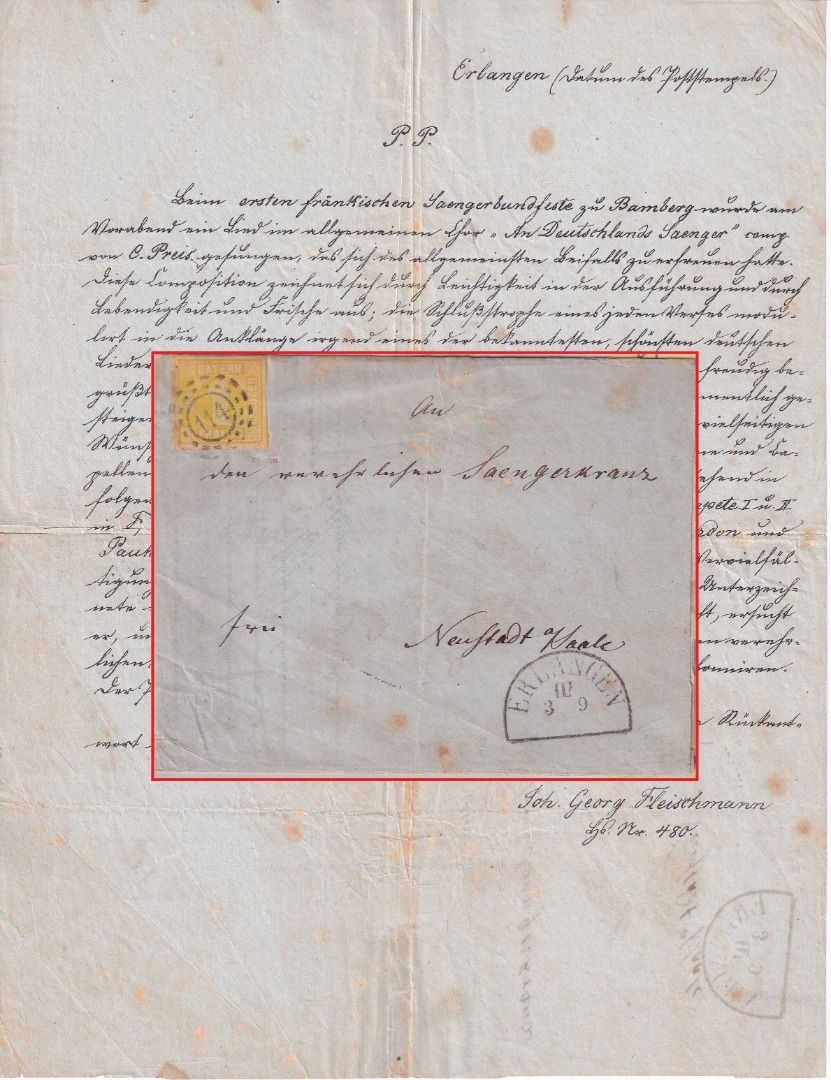 Erlangen (Datum des Poststempels.)
P. P.
Beim ersten fränkischen Saengerbundfeste zu Bamberg wurde am
Vorabend ein Lied im allgemeinen Chor „An Deutschlands Saenger" comp
von C. Preis gesungen, das sich des allgemeinsten Beifalls zu erfreuen hatte.
Diese Composition zeichnet sich durch Leichtigkeit in der Ausführung und durch
Lebendigkeit und Frische aus; die Schlußstrophe eines jeden Verses modu-
lirt in die Anklänge irgend eines der bekanntesten, schönsten deutschen
Lieder freudig be-
grüßt mentlich ge-
steige vielseitigen
Wünsch ne und Ca-
pellen ehend in
folgen pete I u. II
in F, rdon und
Pauk Vervielfäl-
tigung Unterzeich-
nete ht, ersucht
er, en verehr-
lichen bonniren.
Der P
n Rückant-
wort
Joh. Georg Fleischmann
Hs. Nr. 480.
BAYERN
114
An
den verehrlichen Saengerkranz
frei
Neustadt a/Saale
ERLANGEN
III
3 9